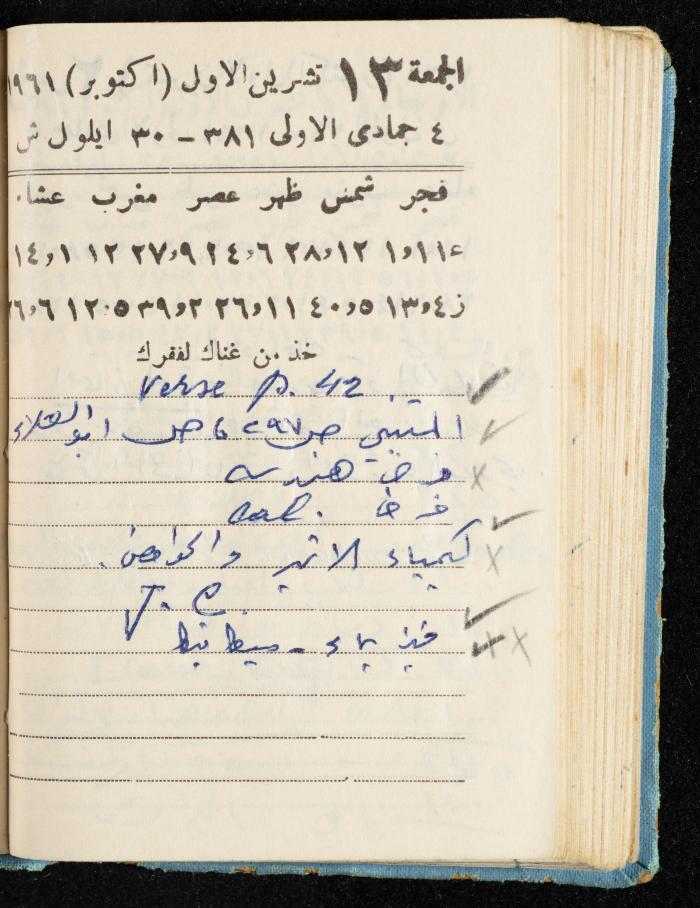 الجمعة ١٣ تشرين الاول (اكتوبر) ١٩٦١
٤ جمادى الاولى ٣٨١ - ٣٠ ايلول ش
فجر شمس ظهر عصر مغرب عشاء
ع ١١و١ ١٢و٢٨ ٦و٢٤ ٩و٢٧ ١٢ ١و١٤
ز ٤و١٣ ٥و٤٠ ١١و٢٦ ٢و٣٩ ٥٠١٢ ٦و٢٦
خذ من غناك لفقرك
Verse p. 42
المتنبي ص ٢٩٧ ص ابو العلاء
هندسة
cal.
كيمياء الاثير والحوامض.
J. C.
فيزياء -